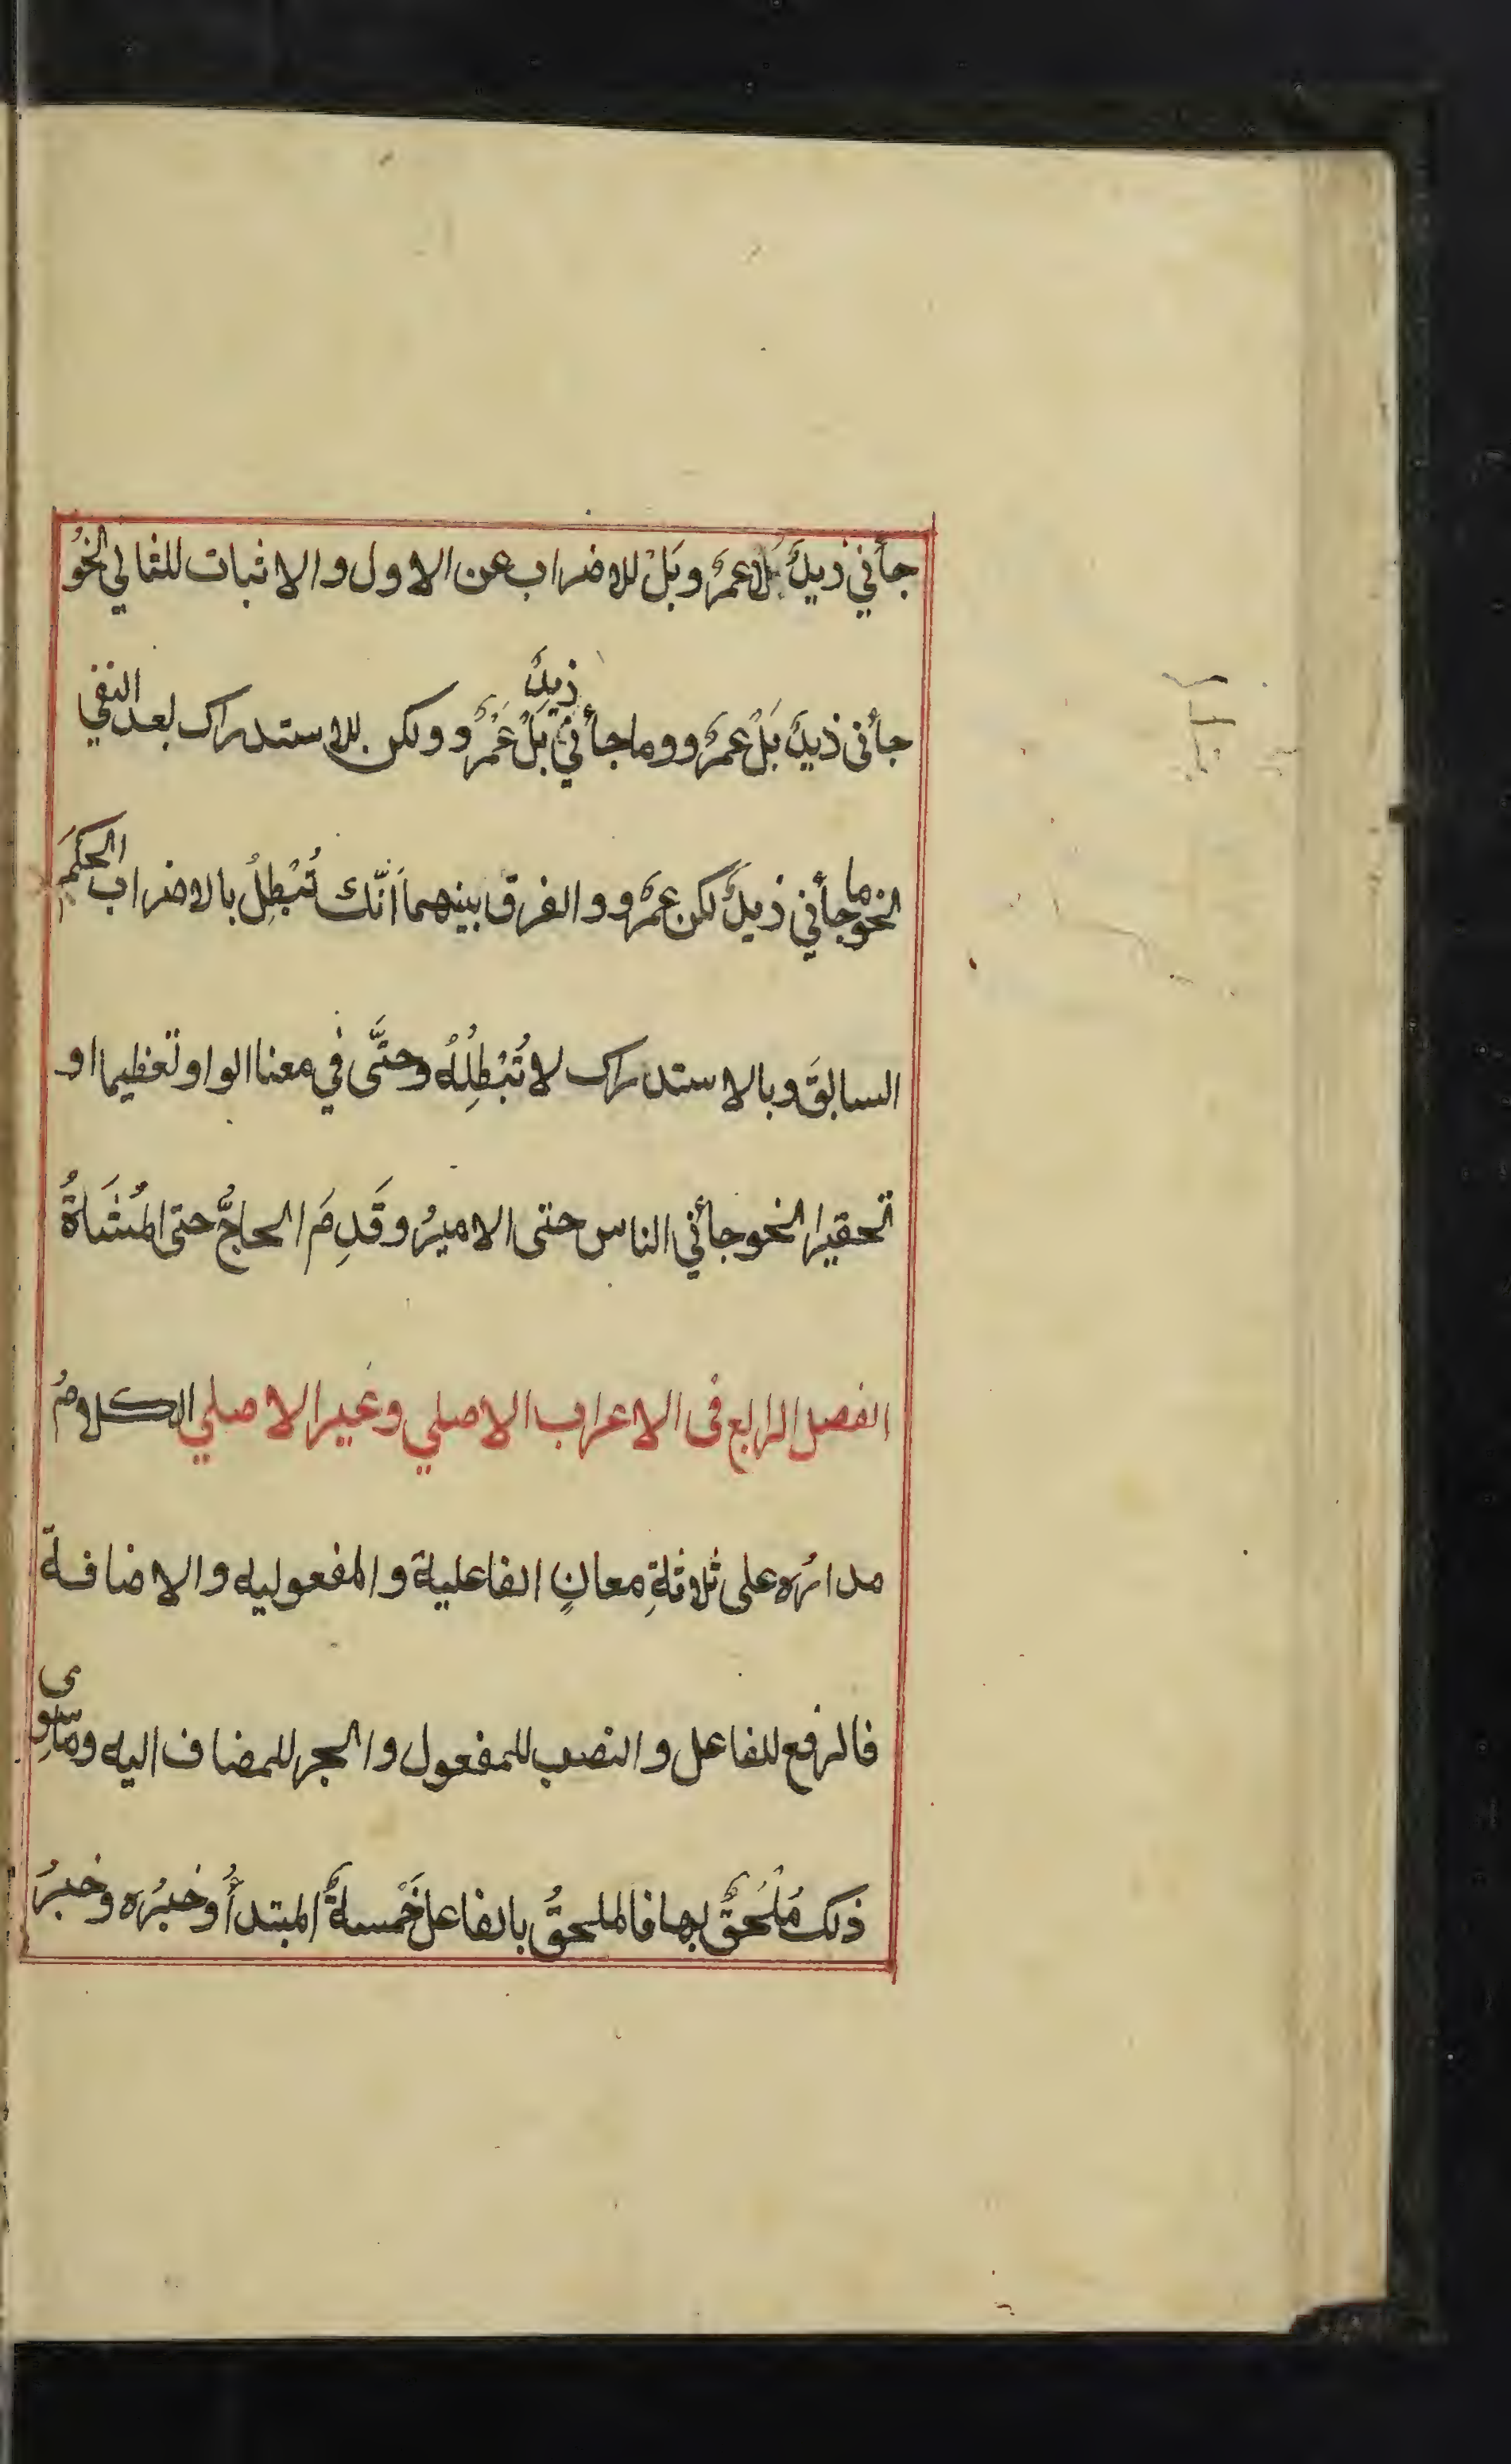 جأني ذيدٌ بل عمرٌ و بَلْ للاضراب عن الاول والاثبات للثاني النحوُ
جأنى ذيدٌ بَلْ عمرٌو وما جأني ذيدٌ بَلْ عَمْرٌو ولكن للاستدراك بعد النفي
النحو ما جأني ذيدٌ لكن عمرٌو والفرق بينهما اَنَّك تُبْطِلُ بالاضراب الحكمَ
السابقَ وبالاستدراك لا تُبْطِلُهُ وحتَّى في معنا الواو تعظيما او
تحقيرا النحو جأني الناس حتى الاميرُ وقَدِمَ الحاجُّ حتى المُشَاةُ
الفصل الرابع فى الاعراب الاصلي وغير الاصلي الكلامُ
مدارُه على ثلاثةِ معانٍ الفاعلية والمفعوليه والاضافة
فالرفع للفاعل والنصب للمفعول والجر للمضاف اليه وما سِوى
ذلك مُلْحَقٌ بها فالملحقُ بالفاعل خَمْسةٌ المبتدأُ وخبرُه وخبرُ